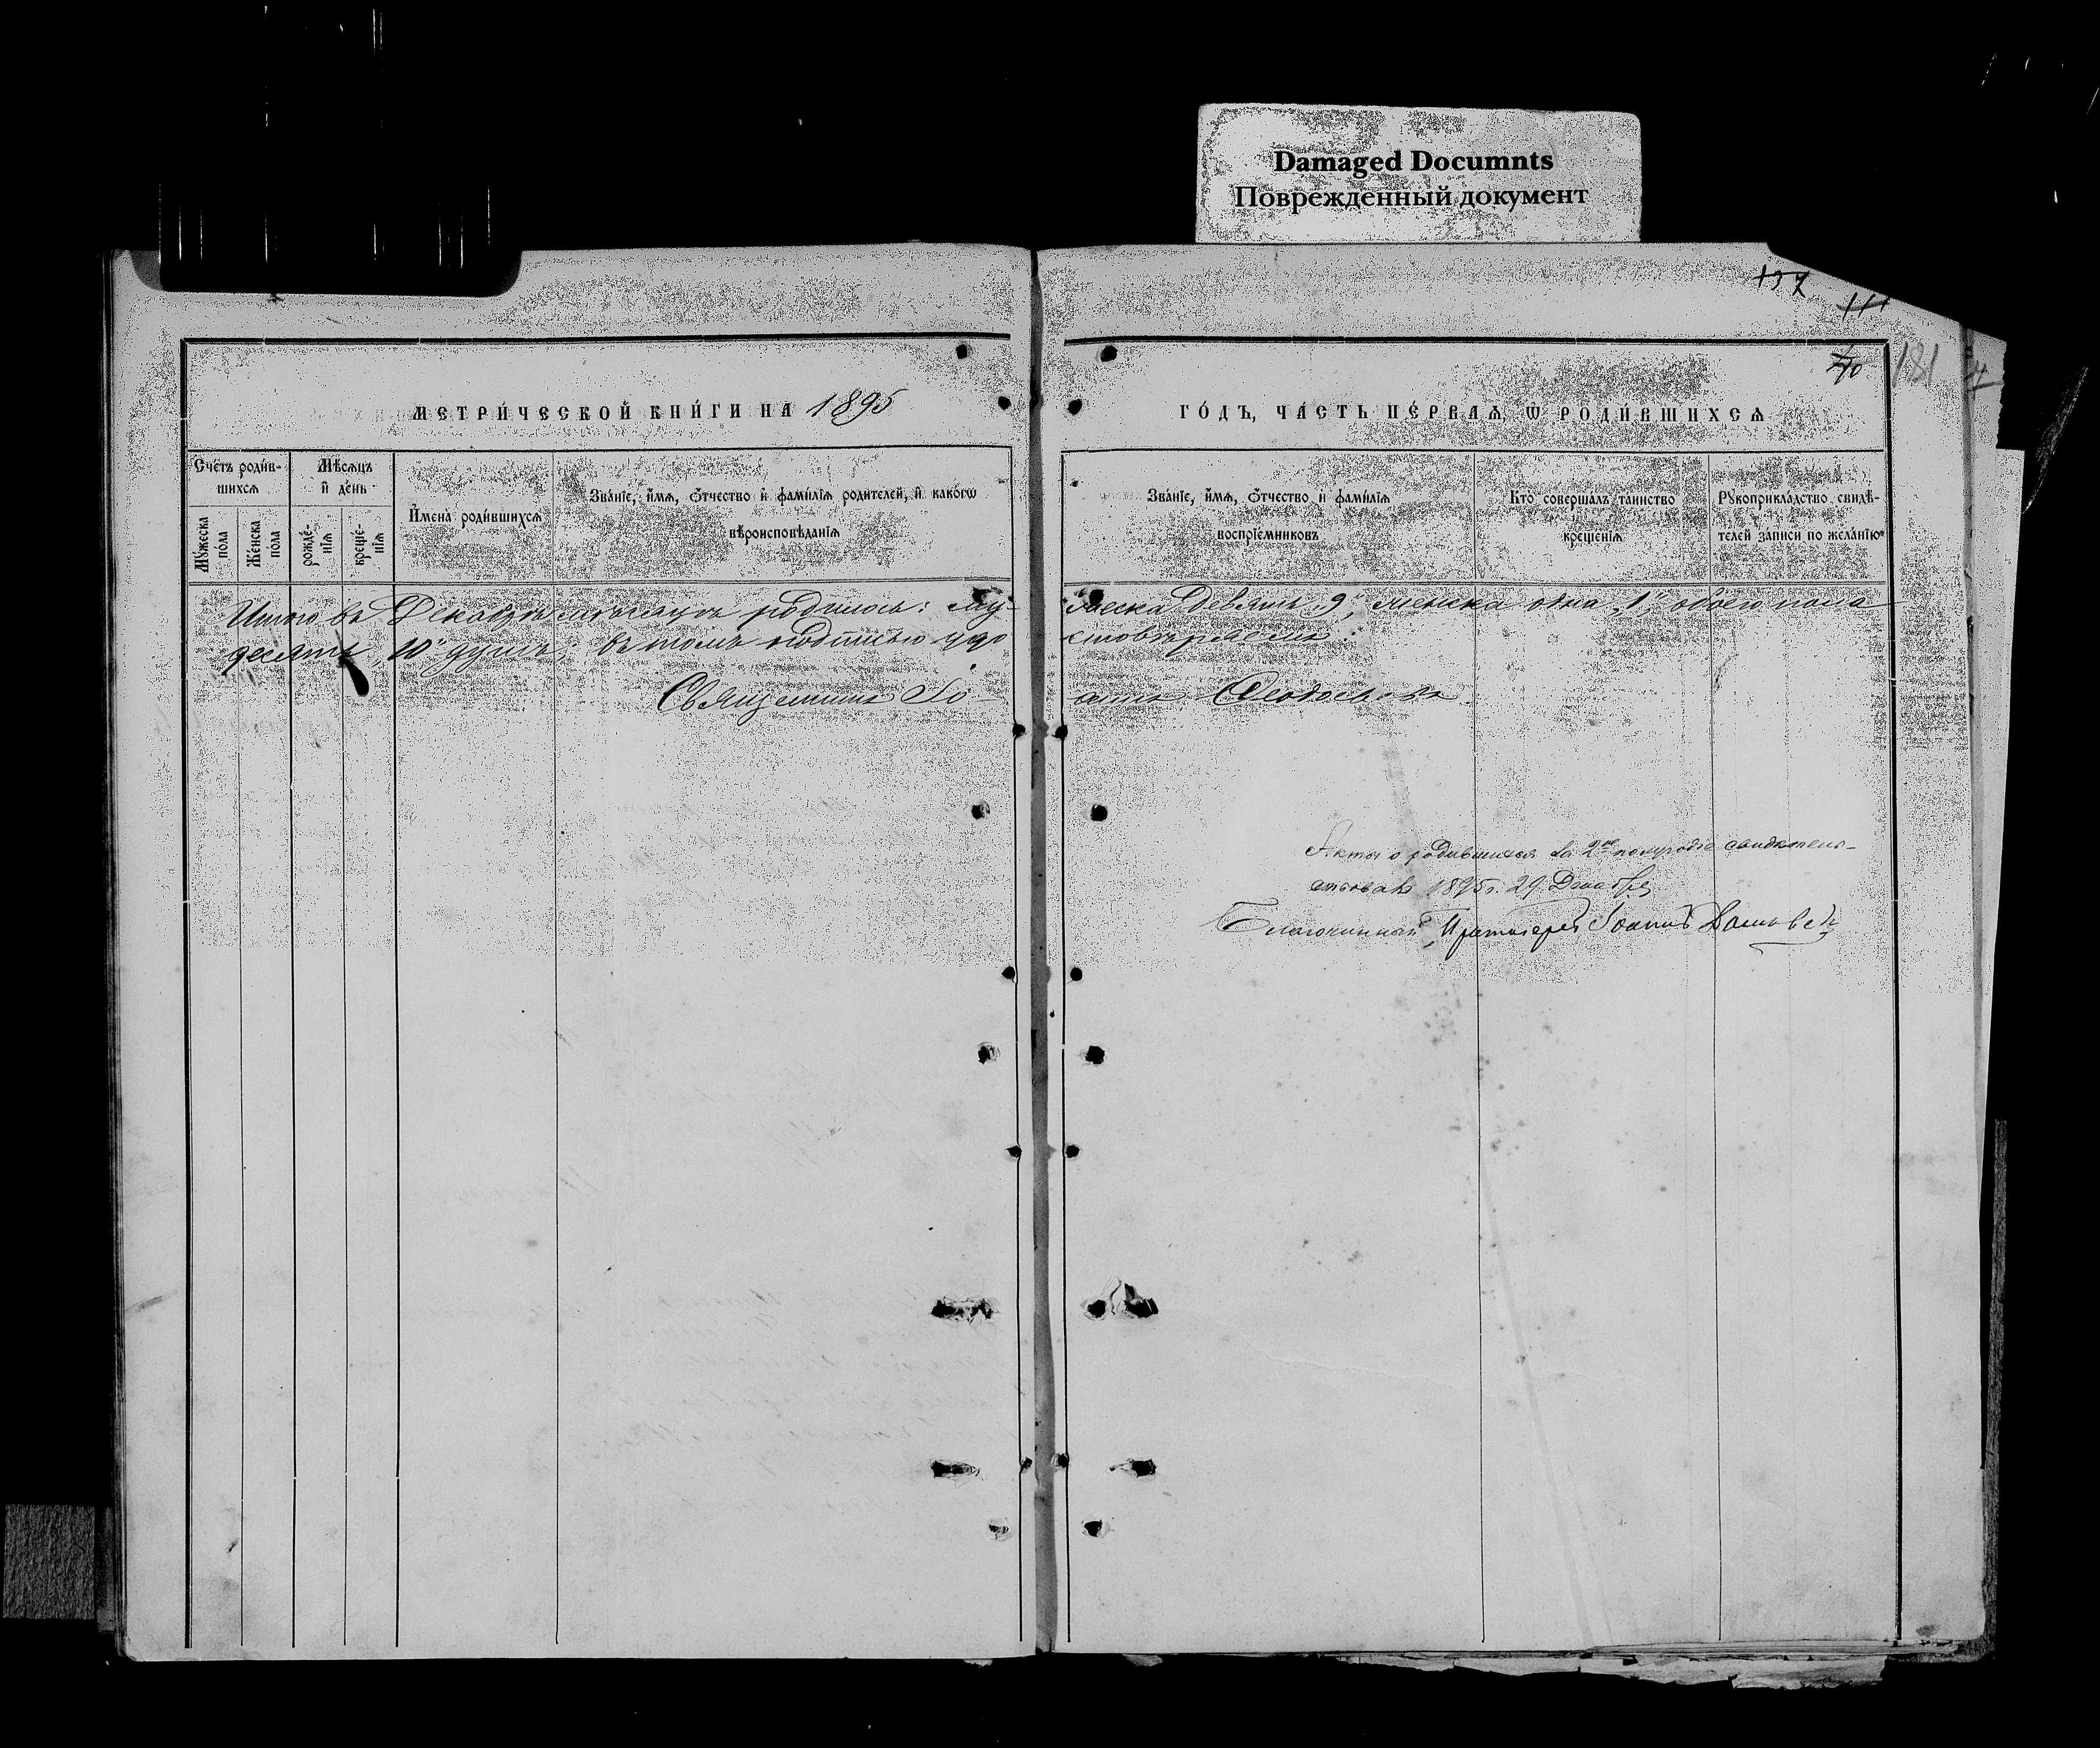 Damaged Documnts
Поврежденный документ
137
111
181
МЕТРИ́ЧЕСКОЙ КНИ́ГИ НА 1895
ГО́ДЪ, ЧА́СТЬ ПЕ́РВАѦ, Ѿ РОДИ́ВШИХСѦ
Сче́тъ роди́в-
шихсѧ
Мѣ́сѧцъ
и҆ де́нь
Му́жеска по́ла
Же́нска по́ла
рожде́-
нїѧ
креще́-
нїѧ
И҆мена̀ роди́вшихсѧ
Зва́нїе, и҆́мѧ, ѻ҆́тчество и҆ фами́лїѧ роди́телей, и҆ како́гѡ
вѣроисповѣ́данїѧ
Зва́нїе, и҆́мѧ, ѻ҆́тчество и҆ фами́лїѧ
воспрїе́мниковъ
Кто̀ соверша́лъ та́инство
креще́нїѧ
Рꙋкоприкла́дство свидѣ́-
телей за́писи по жела́нїю
Итого въ Декабрѣ мѣсяцѣ родилось: му-
жеска девять „9", женска одна „1", обоего пола
десять „10" душъ; въ томъ подписью удо
стовѣряемъ:
Священникъ Іо-
аннъ Ѳеодосьевъ
Акты о родившихся за 2ое полугодіе свидѣтель-
ствовалъ 1895 г. 29 Декабря
Благочинный, Протоіерей Іоаннъ